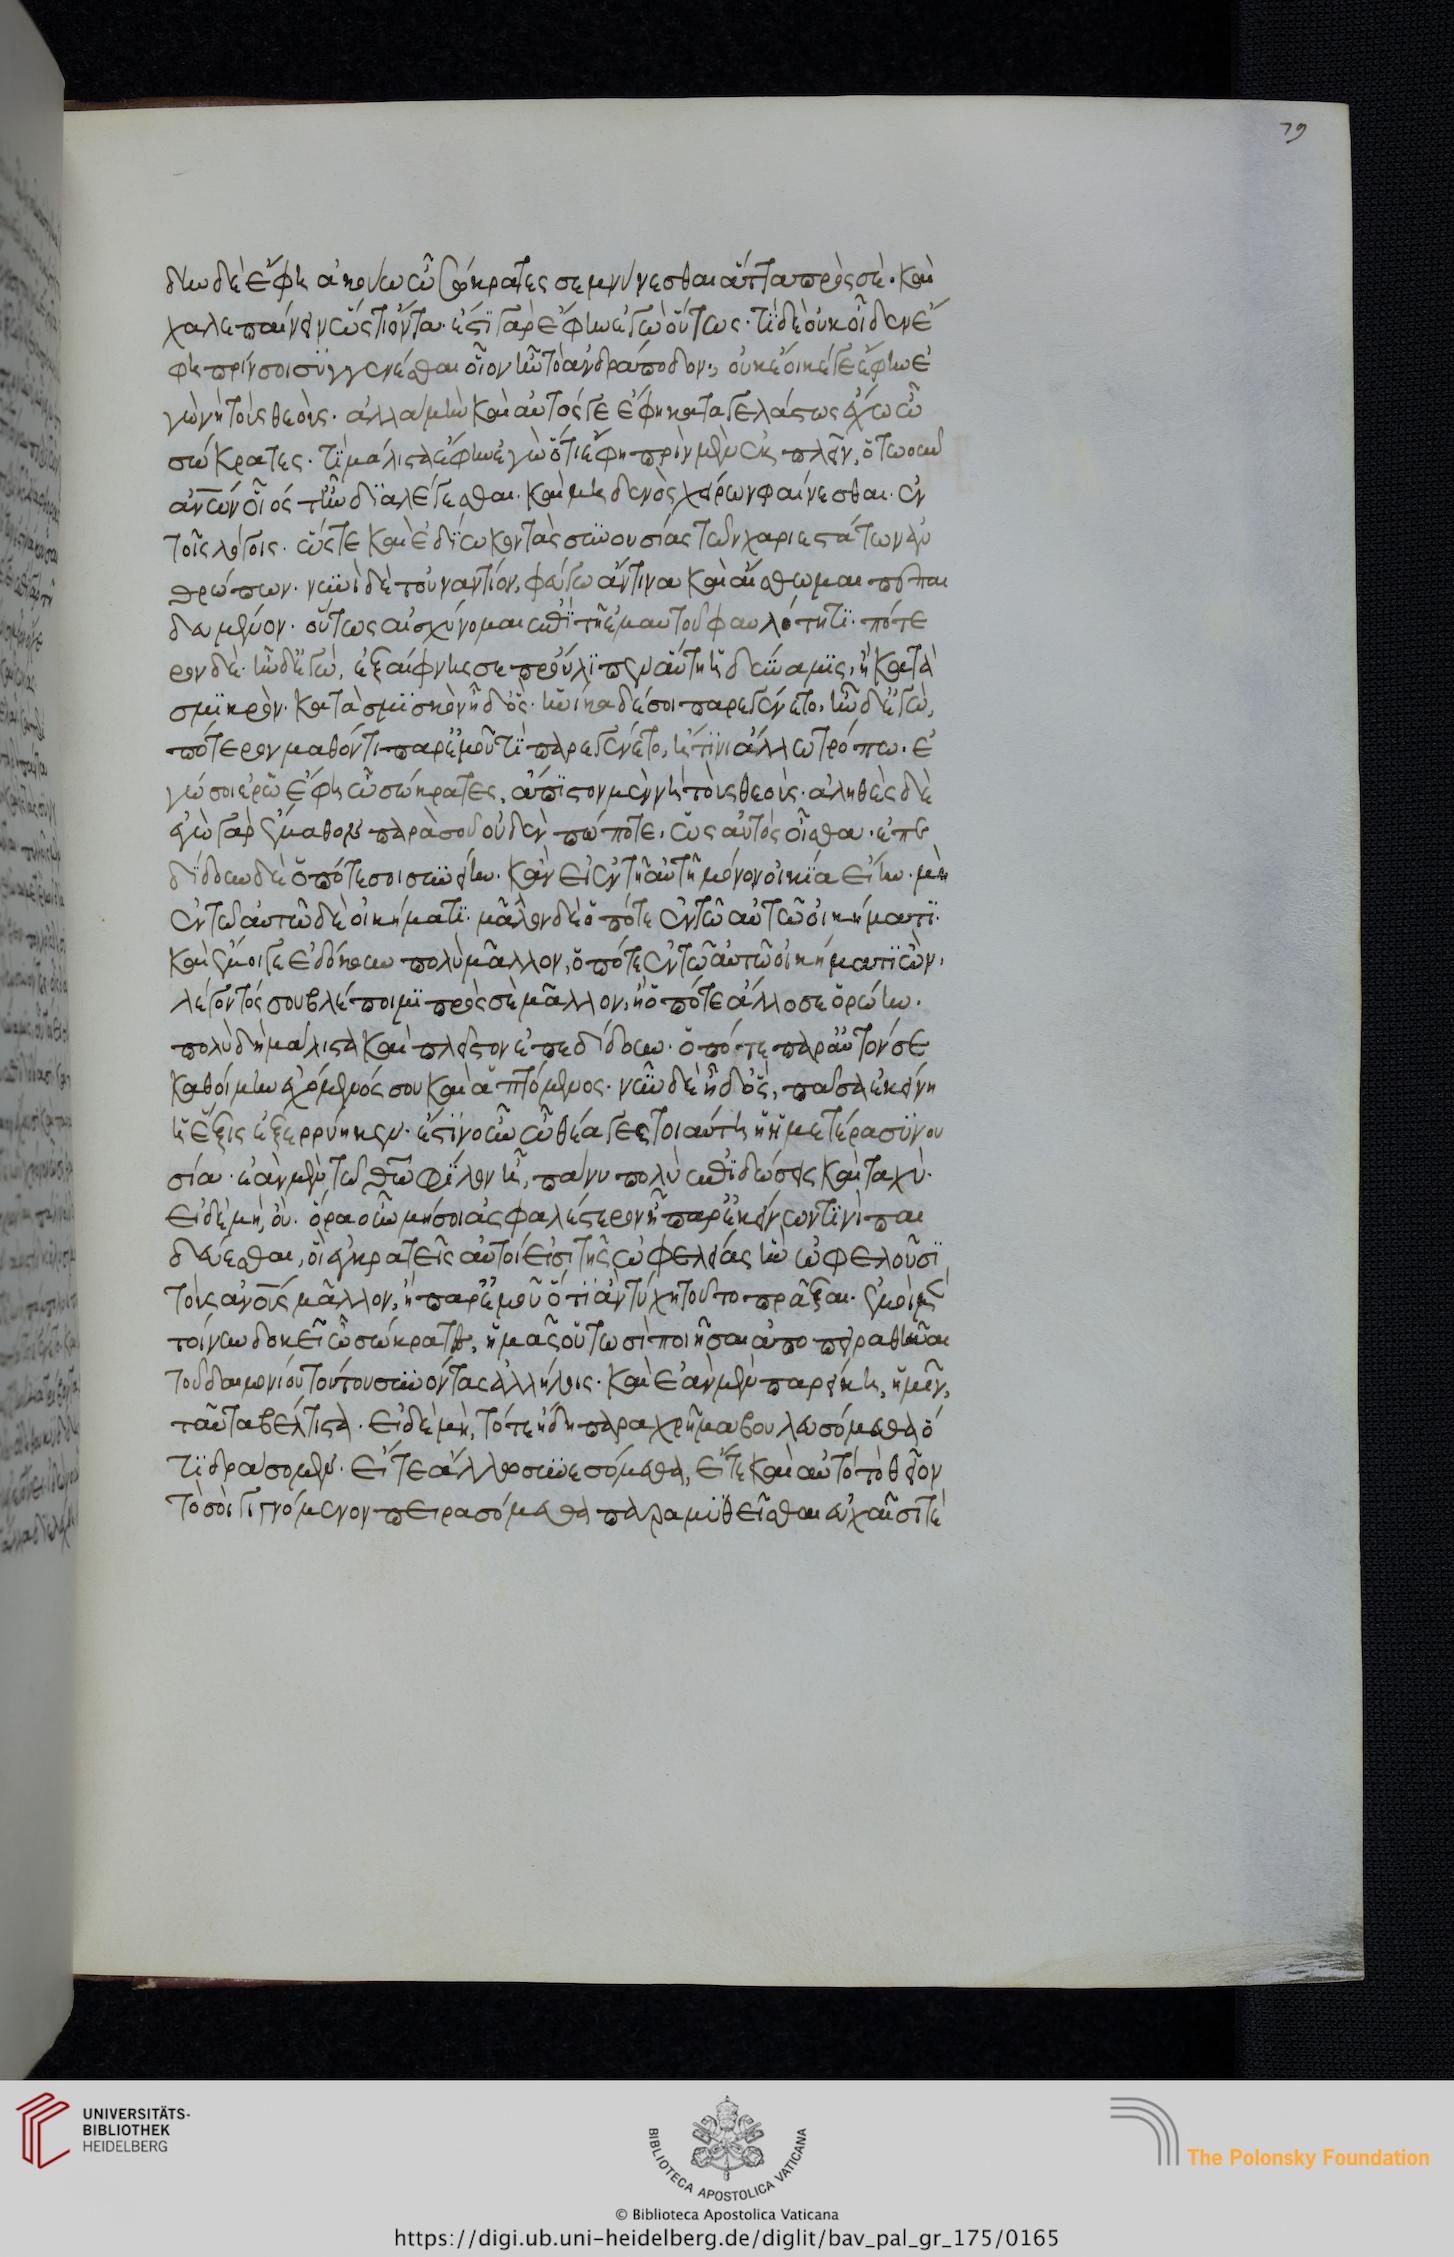 δην δὲ ἔφη ἀκούω ὦ Σώκρατες σεμνύνεσθαι ἄττα πρὸς σὲ· καὶ
χαλεπαίνειν ὥς τι ὄντα· ἔστι γὰρ ἔφην ἐγὼ οὕτως· τί δὲ οὐκ οἶδεν ἔ
φη πρίν σοι συγγενέσθαι οἷον ἦν τὸ ἀνδράποδον·, οὐκ ἔοικέ γε ἔφην ἐ
γὼ νὴ τοὺς θεοὺς· ἀλλὰ μὴν καὶ αὐτός γε ἔφη καταγελάστως ἔχω ὦ
σώκρατες· τί μάλιστα ἔφην ἐγὼ ὅτι ἔφη πρὶν μὲν ἐκπλεῖν, ὅτωουν
ἀν̅ων οἷός τ' ἦν διαλέγεσθαι· καὶ μηδενὸς χείρων φαίνεσθαι· ἐν
τοῖς λόγοις· ὥστε καὶ ἐδίωκον τὰς συνουσίας τῶν χαριεστάτων ἀν
θρώπων· νυνὶ δὲ τοὐναντίον, φεύγω ἄν τινα καὶ αἴσθωμαι πεπαι
δευμένον· οὕτως αἰσχύνομαι ἐπὶ τῇ ἐμαυτοῦ φαυλότητι· πότε
ρον δὲ· ἦν δ' ἐγώ, ἐξαίφνης σε προύλιπεν αὕτη ἡ δύναμις, ἢ κατὰ
σμικρὸν· κατὰ σμικρὸν ἦ δ' ὅς· ἡνίκα δέ σοι παρεγένετο, ἦν δ' ἐγώ,
πότερον μαθόντι παρ' ἐμοῦ τι παρεγένετο, ἤ τινι ἄλλω τρόπω· ἐ
γώ σοι ἐρῶ ἔφη ὦ σώκρατες, ἄπιστον μὲν νὴ τοὺς θεοὺς· ἀληθὲς δὲ
ἐγὼ γὰρ ἔμαθον παρὰ σοῦ οὐδὲν πώποτε, ὡς αὐτὸς οἶσθα· ἐπε
δίδουν δὲ ὁπότε σοι συνείην· κἂν εἰ ἐν τῆ αὐτῆ μόνον οἰκία εἴην· μὴ
ἐν τῶ αὐτῶ δὲ οἰκήματι· μᾶλλον δὲ ὁπότε ἐν τῶ αὐτῶ οἰκήματι·
καὶ ἔμοιγε ἐδόκουν πολὺ μᾶλλον, ὁπότε ἐν τῶ αὐτῶ οἰκήματι ὢν,
λέγοντός σου βλέποιμι πρὸς σὲ μᾶλλον, ἢ ὁπότε ἄλλοσε ὁρώην·
πολὺ δὴ μάλιστα καὶ πλεῖστον ἐπεδίδουν· ὁπότε παρ' αὐτόν σε
καθοίμην ἐχόμενός σου καὶ ἁπτόμενος· νῦν δὲ ἦ δ' ὅς, πᾶσα ἐκείνη
ἡ ἕξις ἐξερρύηκεν· ἔστιν οὖν ὦ θέαγες τοιαύτη ἡ ἡμετέρα συνου
σία· ἐὰν μὲν τῶ θῶ φίλον ἦ, πάνυ πολὺ ἐπιδώσεις καὶ ταχὺ·
εἰ δὲ μή, οὐ· ὅρα οὖν μή σοι ἀσφαλέστερον ἦ παρ' ἐκείνων τινὶ παι
δεύεσθαι, οἳ ἐγκρατεῖς αὐτοί εἰσι τῆς ὠφελείας ἣν ὠφελοῦσι
τοὺς ἀν̅ους μᾶλλον, ἢ παρ' ἐμοῦ ὅ τι ἂν τύχη τοῦτο πρᾶξαι· ἐμοὶ μὲν
τοίνυν δοκεῖ ὦ σώκρατες, ἡμᾶς οὑτωσὶ ποιῆσαι ἀποπειραθῆναι
τοῦ δαιμονίου τούτου συνόντας ἀλλήλοις· καὶ ἐὰν μὲν παρείκη, ἡμῖν,
ταῦτα βέλτιστα· εἰ δὲ μὴ, τότε ἤδη παραχρῆμα βουλευσόμεθα ὅ
τι δράσομεν· εἴτε ἄλλω συνεσόμεθα, εἴτε καὶ αὐτὸ τὸ θεῖον
τὸ σοὶ γιγνόμενον πειρασόμεθα παραμυθεῖσθαι εὐχαῖσί τε
79
UNIVERSITÄTS-
BIBLIOTHEK
HEIDELBERG
BIBLIOTECA APOSTOLICA VATICANA
The Polonsky Foundation
© Biblioteca Apostolica Vaticana
https://digi.ub.uni-heidelberg.de/diglit/bav_pal_gr_175/0165